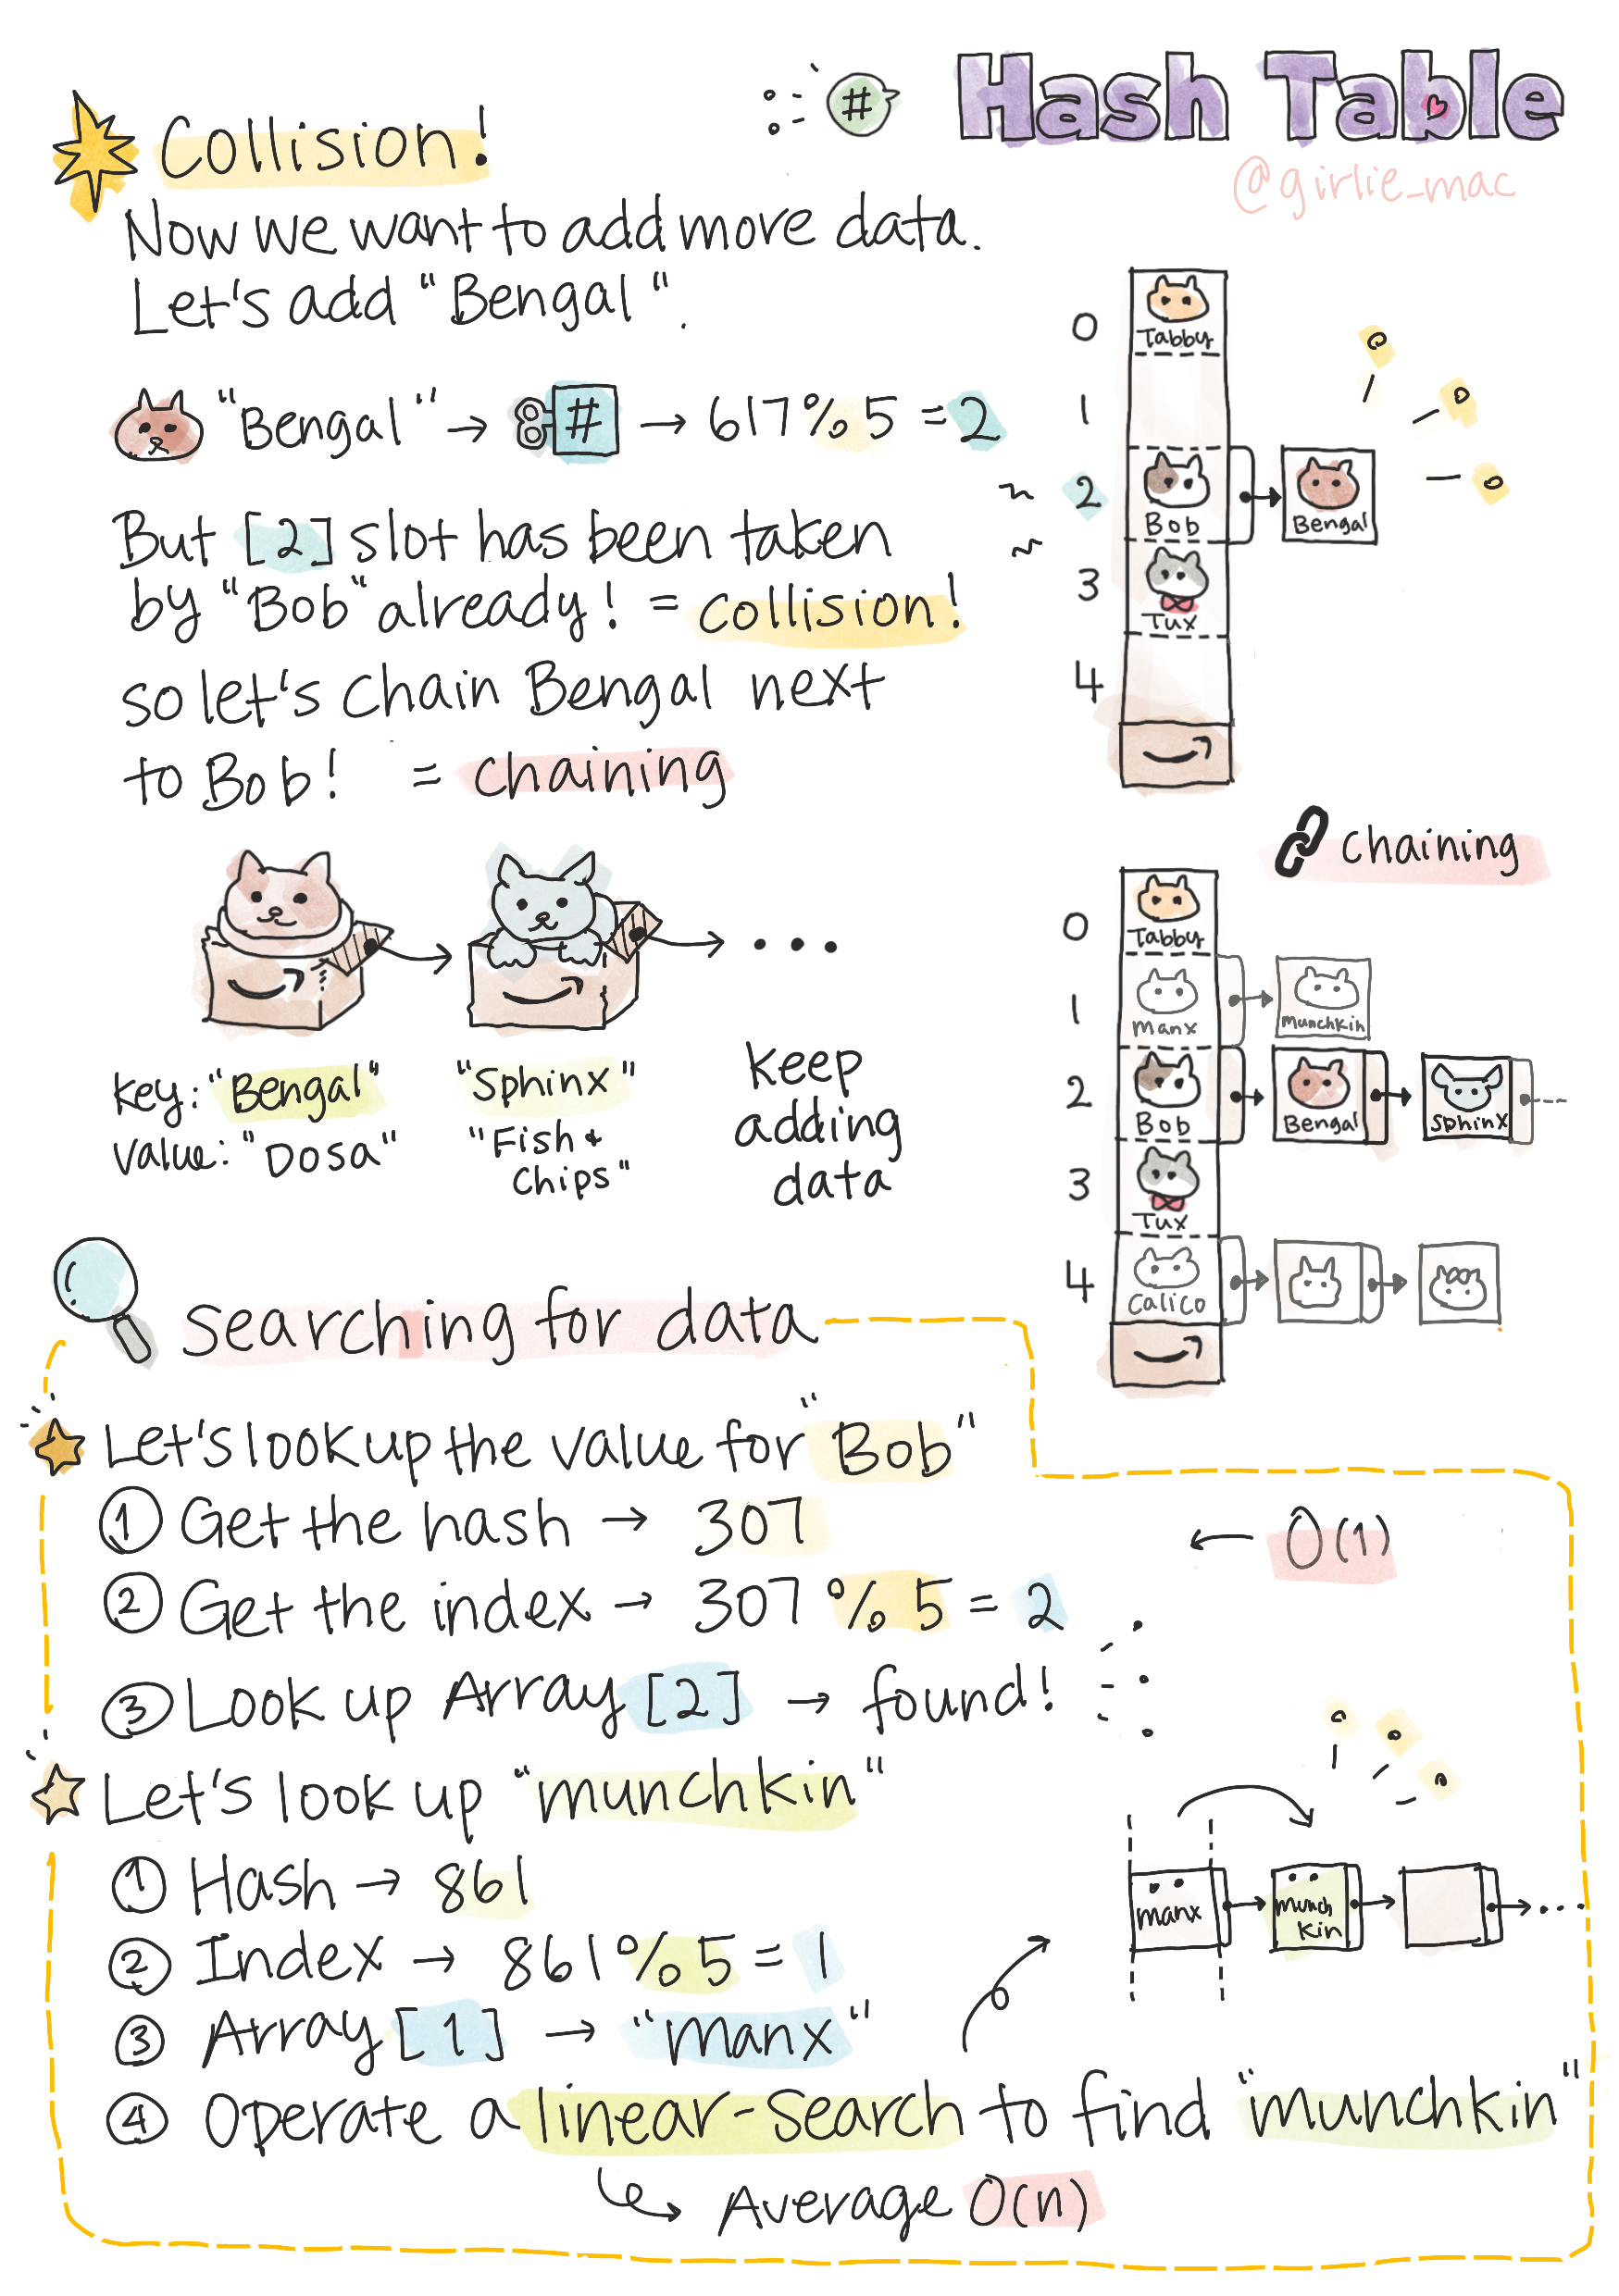 # Hash Table
@girlie_mac
Collision!
Now we want to add more data.
Let's add "Bengal".
"Bengal" → # → 617 % 5 = 2
But [2] slot has been taken
by "Bob" already! = collision!
so let's chain Bengal next
to Bob! = chaining
0 Tabby
1
2 Bob → Bengal
3 Tux
4
Key: "Bengal"
Value: "Dosa"
"Sphinx"
"Fish +
Chips"
Keep
adding
data
chaining
0 Tabby
1 Manx → Munchkin
2 Bob → Bengal → Sphinx
3 Tux
4 Calico
Searching for data
Let's look up the value for "Bob"
① Get the hash → 307
② Get the index → 307 % 5 = 2
③ Look up Array [2] → found!
← O(1)
Let's look up "munchkin"
① Hash → 861
② Index → 861 % 5 = 1
③ Array [1] → "manx"
④ Operate a linear-search to find "munchkin"
Average O(n)
manx → munch → → ...
kin